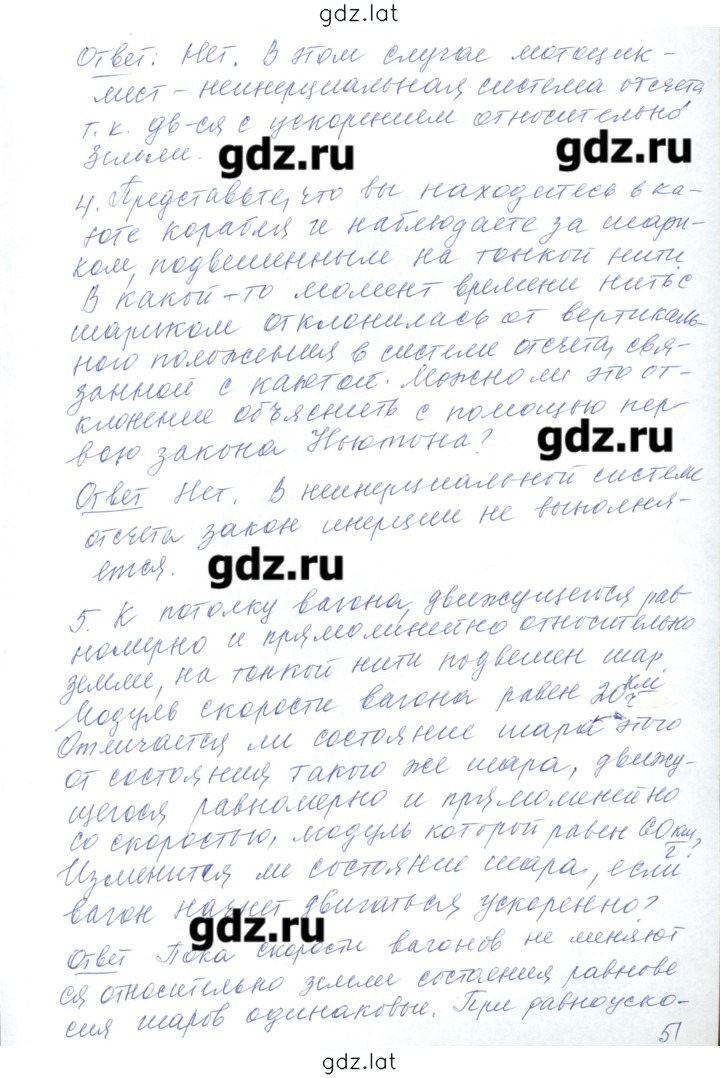 gdz.lat
Ответ: Нет. В этом случае мотоцик-
лист – неинерциальная система отсчета
т.к. дв-ся с ускорением относительно
Земли.
gdz.ru
gdz.ru
4. Представьте, что вы находитесь в ка-
юте корабля и наблюдаете за шари-
ком, подвешенным на тонкой нити
В какой-то момент времени нить с
шариком отклонилась от вертикаль-
ного положения в системе отсчета, свя-
занной с каютой. Можно ли это от-
клонение объяснить с помощью пер
вого закона Ньютона?
gdz.ru
Ответ Нет. В неинерциальной системе
отсчета закон инерции не выполня-
ется.
gdz.ru
5. К потолку вагона, движущегося рав
номерно и прямолинейно относительно
земли, на тонкой нити подвешен шар
Модуль скорости вагона равен 20 км/ч
Отличается ли состояние шара этого
от состояния такого же шара, движу-
щегося равномерно и прямолинейно
со скоростью, модуль которой равен 60 км/г?
Изменится ли состояние шара, если
вагон начнет двигаться ускоренно?
gdz.ru
Ответ Пока скорости вагонов не меняют
ся относительно земли состояния равнове
сия шаров одинаковые. При равноуско-
51
gdz.lat